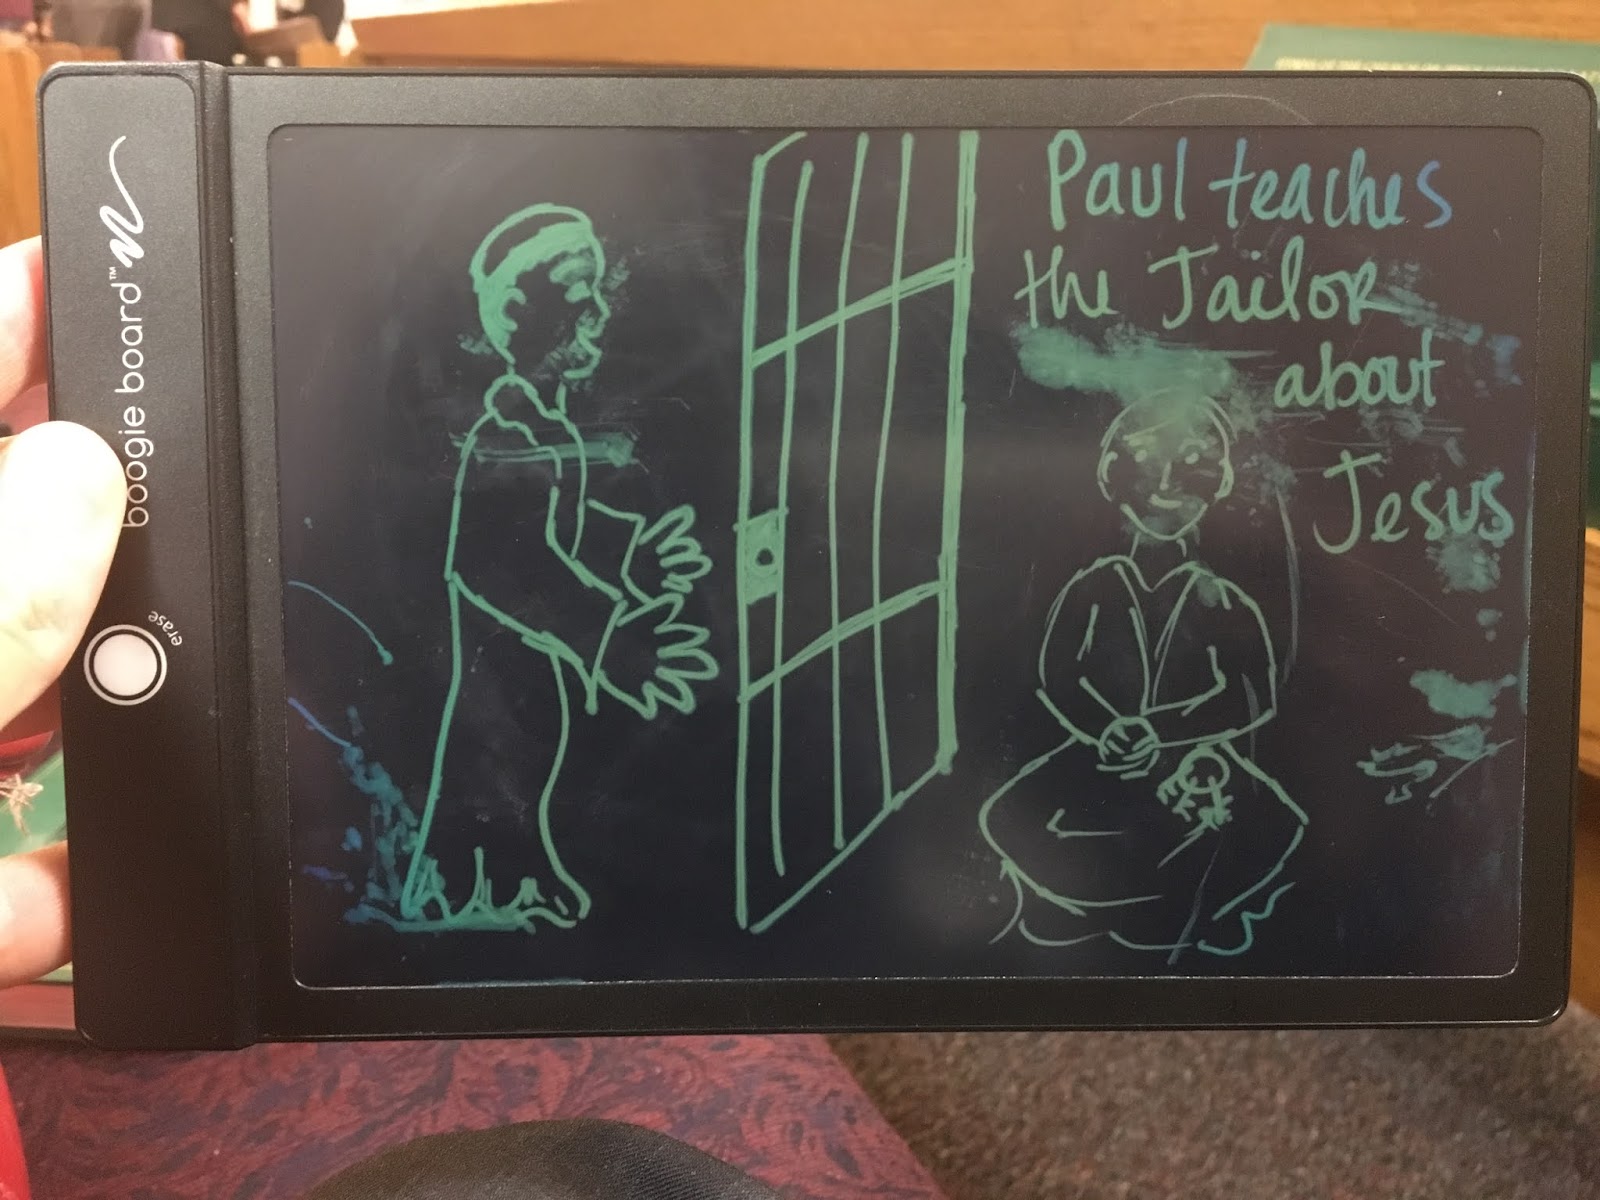 boogie board™
erase
Paul teaches
the Jailor
about
Jesus